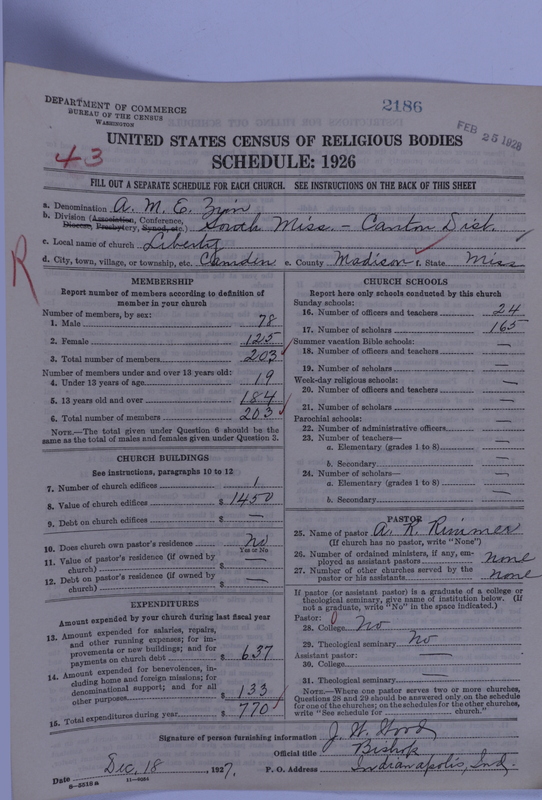 DEPARTMENT OF COMMERCE
BUREAU OF THE CENSUS
WASHINGTON
2186
FEB 25 1928
UNITED STATES CENSUS OF RELIGIOUS BODIES
43
SCHEDULE: 1926
FILL OUT A SEPARATE SCHEDULE FOR EACH CHURCH. SEE INSTRUCTIONS ON THE BACK OF THIS SHEET
R
a. Denomination A. M. E. Zion
b. Division (Association, Conference, Diocese, Presbytery, Synod, etc.) South Miss. - Canton Dist.
c. Local name of church Liberty
d. City, town, village, or township, etc. Camden e. County Madison f. State Miss
MEMBERSHIP
Report number of members according to definition of
member in your church
Number of members, by sex:
1. Male 78
2. Female 125
3. Total number of members 203
Number of members under and over 13 years old:
4. Under 13 years of age 19
5. 13 years old and over 184
6. Total number of members 203
NOTE.—The total given under Question 6 should be the
same as the total of males and females given under Question 3.
CHURCH BUILDINGS
See instructions, paragraphs 10 to 12
7. Number of church edifices 1
8. Value of church edifices $ 1450
9. Debt on church edifices $ —
10. Does church own pastor's residence No
Yes or No
11. Value of pastor's residence (if owned by
church) $ —
12. Debt on pastor's residence (if owned by
church) $ —
EXPENDITURES
Amount expended by your church during last fiscal year
13. Amount expended for salaries, repairs,
and other running expenses; for im-
provements or new buildings; and for
payments on church debt $ 637
14. Amount expended for benevolences, in-
cluding home and foreign missions; for
denominational support; and for all
other purposes $ 133
15. Total expenditures during year $ 770
CHURCH SCHOOLS
Report here only schools conducted by this church
Sunday schools:
16. Number of officers and teachers 24
17. Number of scholars 165
Summer vacation Bible schools:
18. Number of officers and teachers —
19. Number of scholars —
Week-day religious schools:
20. Number of officers and teachers —
21. Number of scholars —
Parochial schools:
22. Number of administrative officers —
23. Number of teachers—
a. Elementary (grades 1 to 8) —
b. Secondary —
24. Number of scholars—
a. Elementary (grades 1 to 8) —
b. Secondary —
PASTOR
25. Name of pastor A. R. Rimmer
(If church has no pastor, write "None")
26. Number of ordained ministers, if any, em-
ployed as assistant pastors none
27. Number of other churches served by the
pastor or his assistants none
If pastor (or assistant pastor) is a graduate of a college or
theological seminary, give name of institution below. (If
not a graduate, write "No" in the space indicated.)
Pastor:
28. College No
29. Theological seminary No
Assistant pastor:
30. College —
31. Theological seminary —
NOTE.—Where one pastor serves two or more churches,
Questions 28 and 29 should be answered only on the schedule
for one of the churches; on the schedules for the other churches,
write "See schedule for church."
Signature of person furnishing information J. W. Wood
Official title Bishop
Date Dec. 18, 1927. P. O. Address Indianapolis, Ind.
8-2318a 11-9034